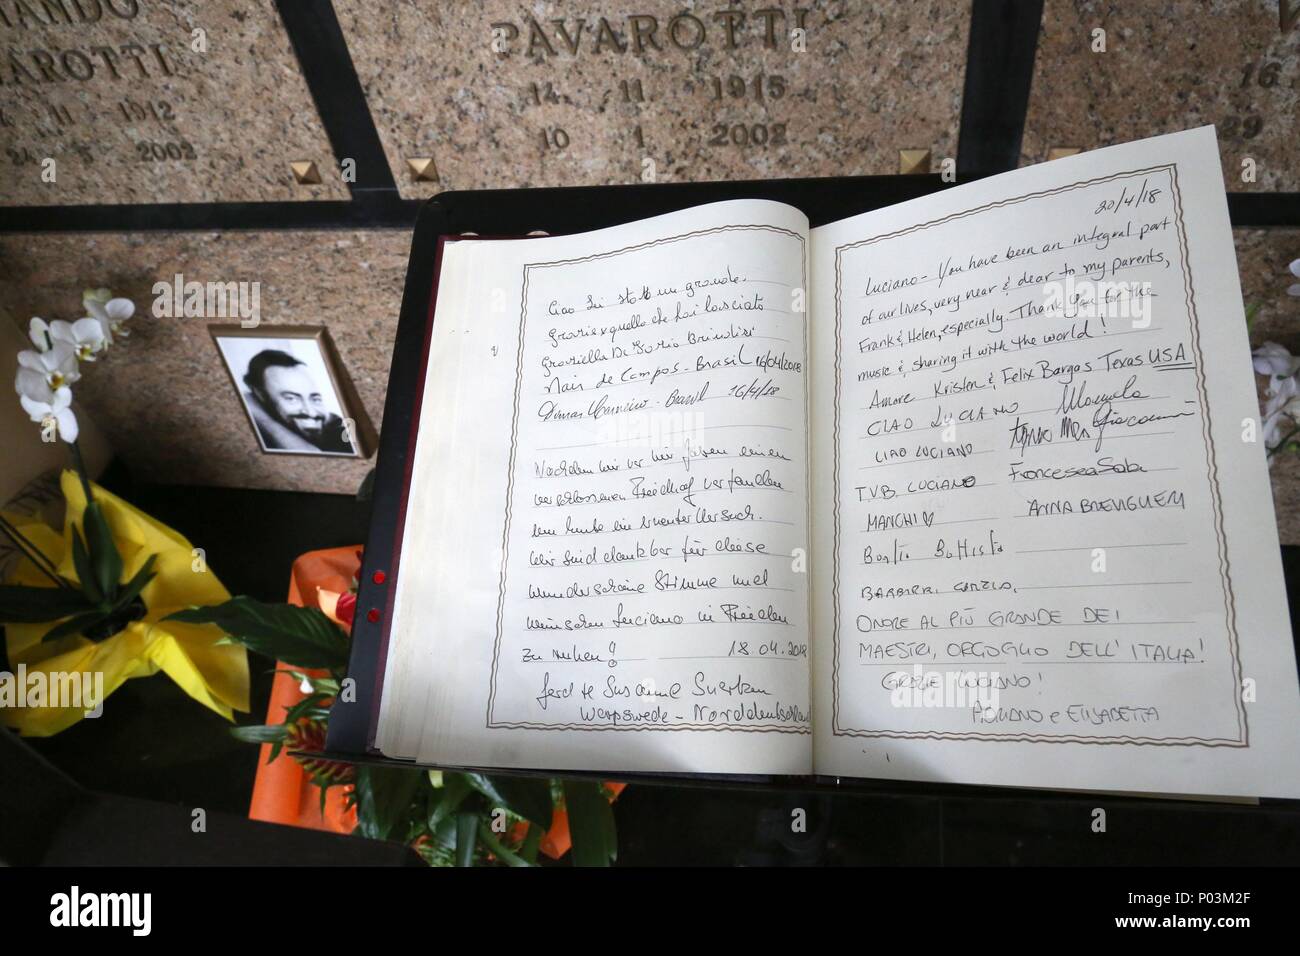 NANDO
AROTTI
11 1912
2002
PAVAROTTI
14 11 1915
10 1 2002
16
29
Ciao sei stato un grande.
Grazie x quello che hai lasciato
Graziella De Brindisi
Nair de Campos - Brasil 16/04/2018
Brasil 16/4/18
Nachdem wir vor Jahren einen
verschlossenen Friedhof vorfanden
nun heute ein erneuter Versuch.
Wir sind dankbar für diese
wunderschöne Stimme und
wünschen Luciano in Frieden
zu ruhen! 18.04.2018
Susanne
Worpswede - Norddeutschland
20/4/18
Luciano - You have been an integral part
of our lives, very near & dear to my parents,
Frank & Helen, especially. Thank you for the
music & sharing it with the world!
Amore Kristen & Felix Bargas Texas USA
CIAO LUCIANO Manuela
CIAO LUCIANO
TVB LUCIANO Francesca
MANCHI ANNA
Battista
BARBIERI
ONORE AL PIÙ GRANDE DEI
MAESTRI, ORGOGLIO DELL'ITALIA!
GRAZIE LUCIANO!
ROMANO e ELISABETTA
alamy
alamy stock photo
P03M2F
www.alamy.com